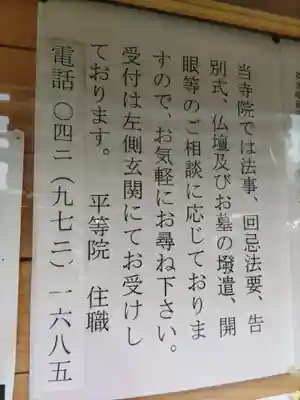 当寺院では法事、回忌法要、告
別式、仏壇及びお墓の撥遣、開
眼等のご相談に応じておりま
すので、お気軽にお尋ね下さい。
受付は左側玄関にてお受けし
ております。 平等院 住職
電話 〇四二(九七二)一六八五